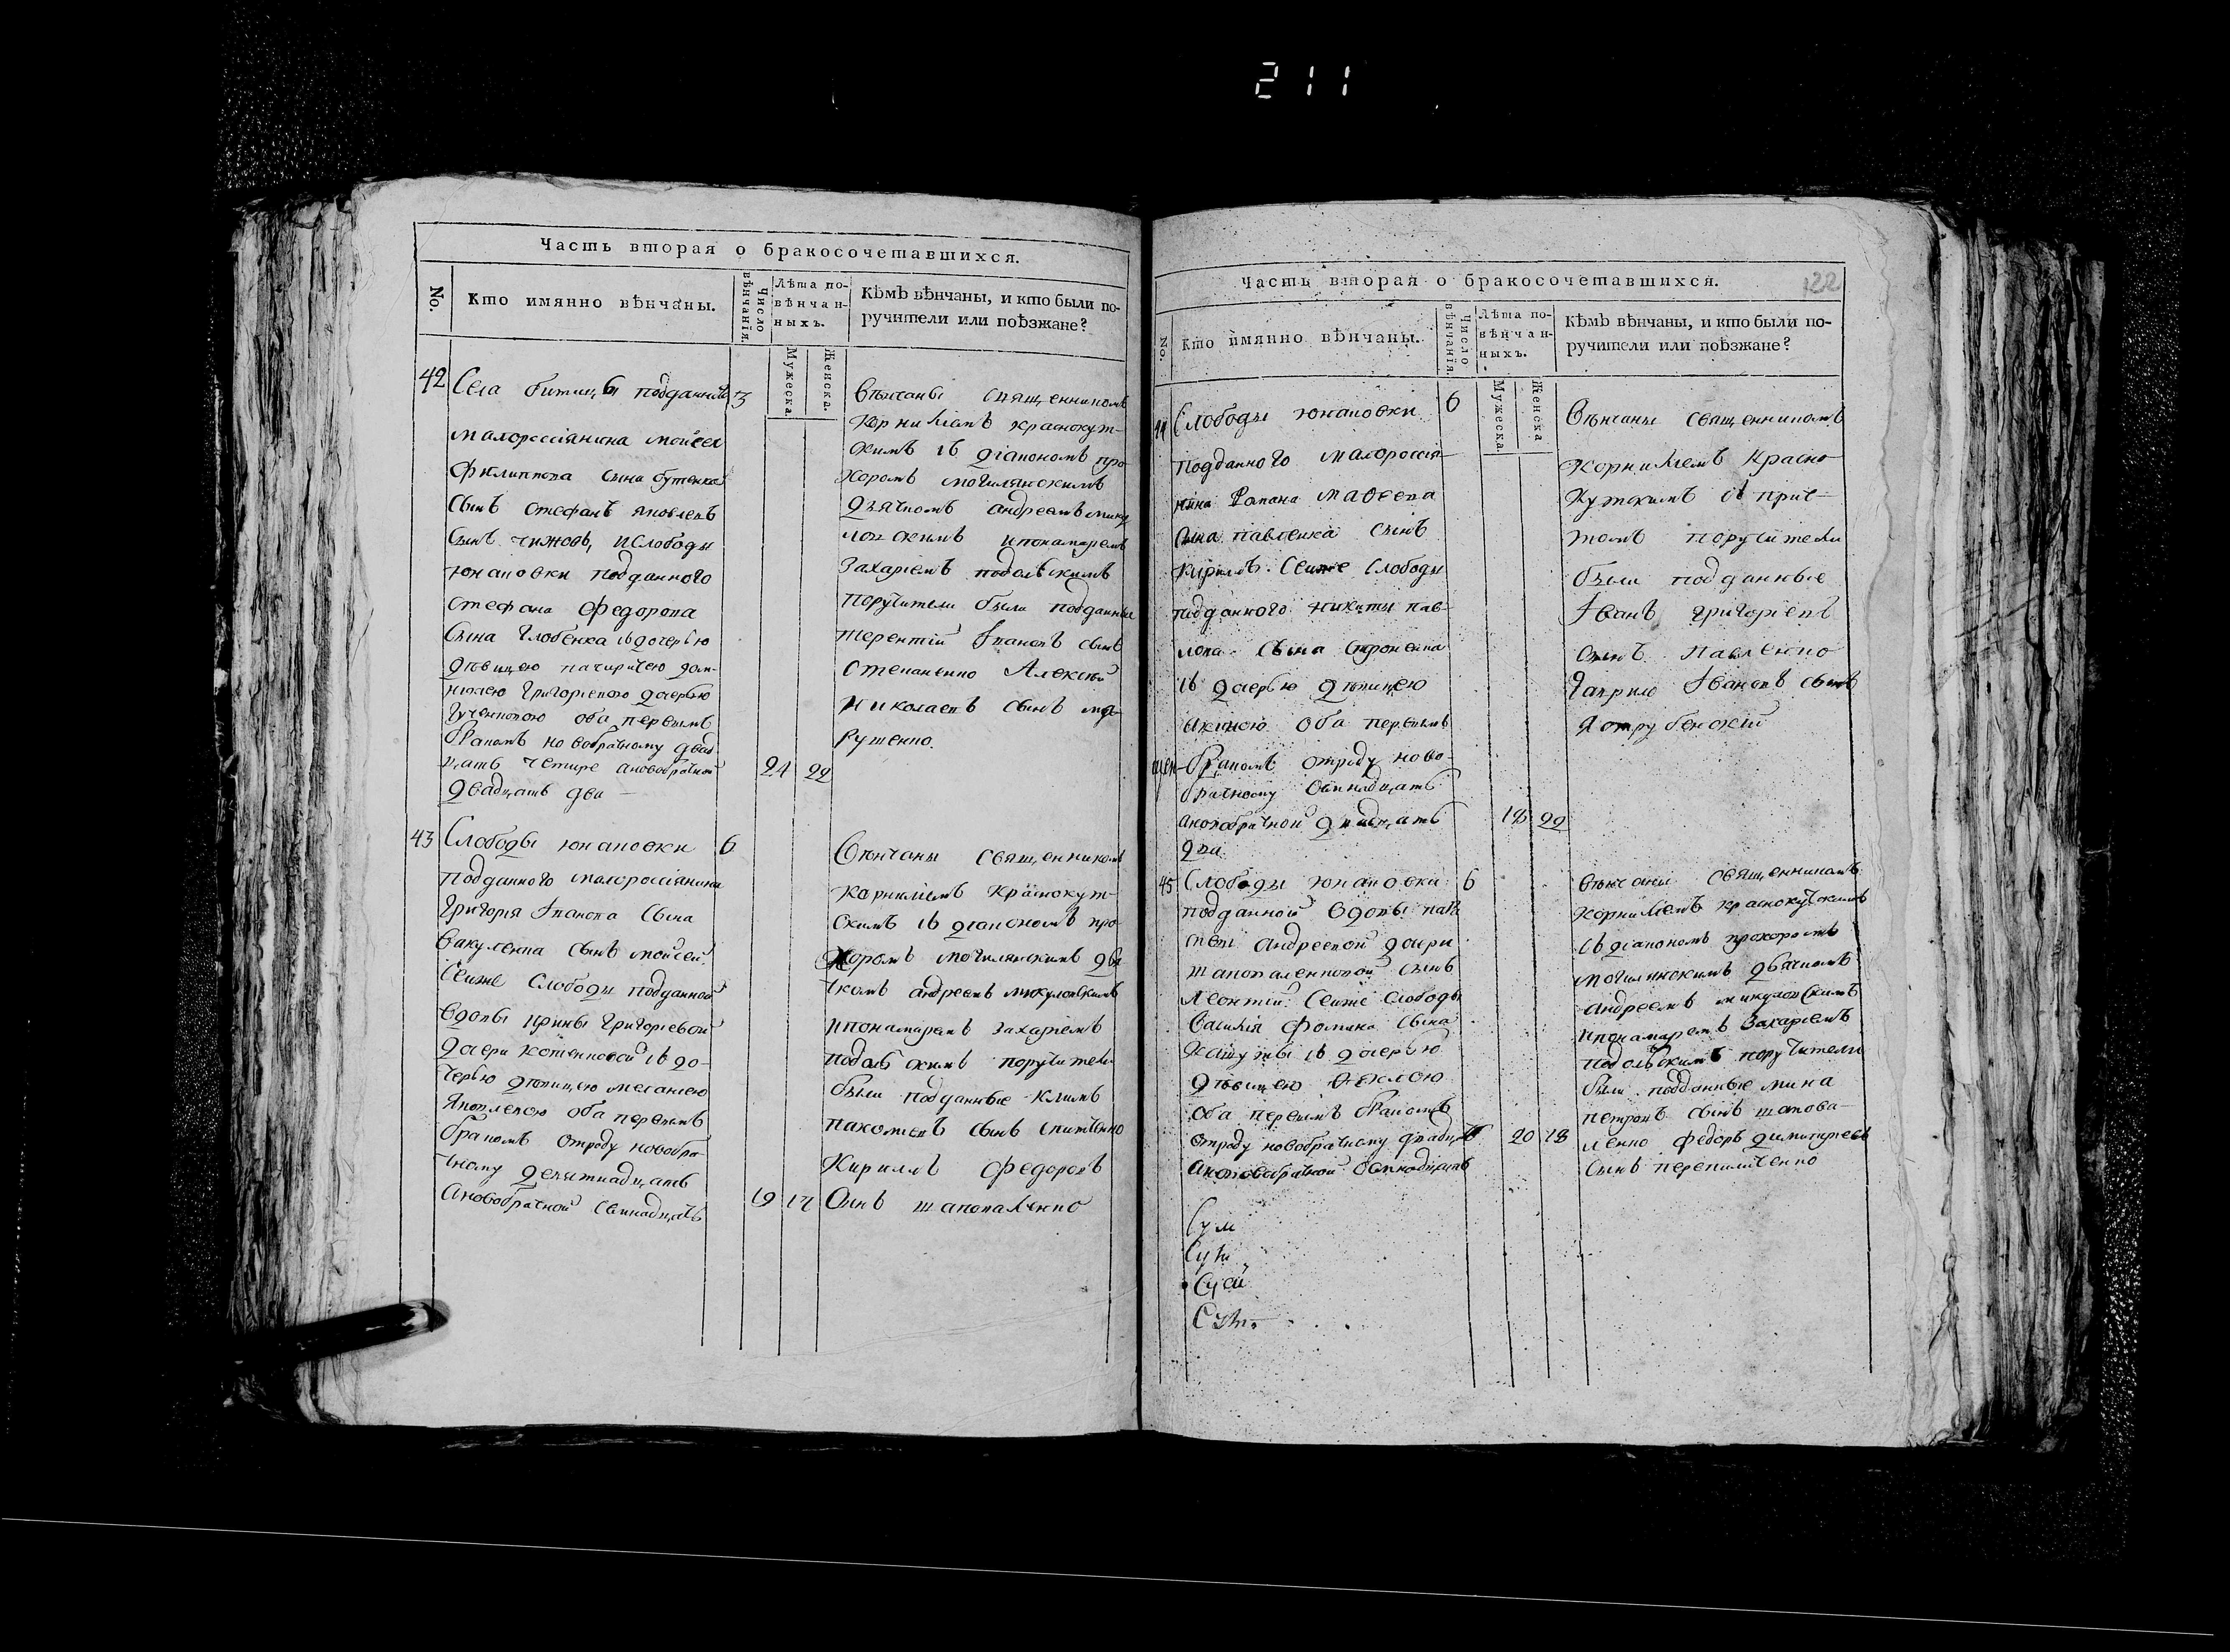 211
Часть вторая о бракосочетавшихся.
No.
Кто имянно вѣнчаны.
Число вѣнчанія.
Лѣта по-
вѣнчан-
ныхъ.
Мужеска.
Женска.
Кѣмъ вѣнчаны, и кто были по-
ручители или поѣзжане?
42
Села битицы подданного
3
малороссіянина Моисея
Филиппова сына бутенка
сынъ стефанъ яковлевъ
сынъ чижовъ, ислободы
юнаковки подданного
стефана федорова
сына глобенка съ дочерью
дѣвицею
григорьевою дочерью
оба первымъ
бракомъ новобрачному двад
цать четире ановобрачной
24 22
двадцать два
вѣнчаны священникомъ
корниліемъ краснокут-
скимъ съ діакономъ про
хоромъ могилянскимъ
дьячкомъ андреемъ мику
ловскимъ ипонамаремъ
захаріемъ подольскимъ
поручители были подданные
терентій Ивановъ сынъ
степаненко Алексѣй
николаевъ сынъ ма-
рущенко.
43
Слободы юнаковки
6
подданного малороссіянина
григорія Іванова сына
вакуленка сынъ моисей.
сейже слободы подданной
вдовы ирины григорьевой
дочери котенковой съ до-
черью дѣвицею меланіею
яковлевою оба первымъ
бракомъ отроду новобра-
чному девятнадцать
ановобрачной семнадцать
19 17
Вѣнчаны священникомъ
корниліемъ краснокут-
скимъ съ діакономъ про-
хоромъ могилянскимъ дья
чкомъ андреемъ микуловскимъ
ипонамаремъ захаріемъ
подольскимъ поручители
были подданные климъ
пахомiевъ сынъ
Кириллъ федоровъ
сынъ шаповаленко
Часть вторая о бракосочетавшихся.
122
No.
Кто имянно вѣнчаны.
Число вѣнчанія.
Лѣта по-
вѣнчан-
ныхъ.
Мужеска.
Женска
Кѣмъ вѣнчаны, и кто были по-
ручители или поѣзжане?
44
Слободы юнаковки
6
подданного малороссія-
нина Романа матвева
сына павленка сынъ
кирилъ. Сейже слободы
подданного никиты пав-
лова сына
съ дочерью дѣвицею
оба первымъ
бракомъ отроду ново-
брачному осмнадцать
ановобрачной двадцать
18 22
два
Вѣнчаны священникомъ
корниліемъ красно-
кутскимъ съ прич-
томъ поручители
были подданные
Іванъ григоріевъ
сынъ павленко
гаврило Івановъ сынъ
ястребенскій
45
Слободы юнаковки
6
подданной вдовы
андреевой дочери
шаповаленковой сынъ
леонтій. Сейже слободы
василія фомина сына
съ дочерью
дѣвицею Ѳеклою
оба первымъ бракомъ
отроду новобрачному двадцать
20 18
ановобрачной осмнадцать
вѣнчаны священникомъ
корниліемъ краснокутскимъ
съ діакономъ прохоромъ
могилянскимъ дьячкомъ
андреемъ микуловскимъ
ипонамаремъ захаріемъ
подольскимъ поручители
были подданные мина
петровъ сынъ шапова-
ленко федоръ димитріевъ
сынъ перепиличенко